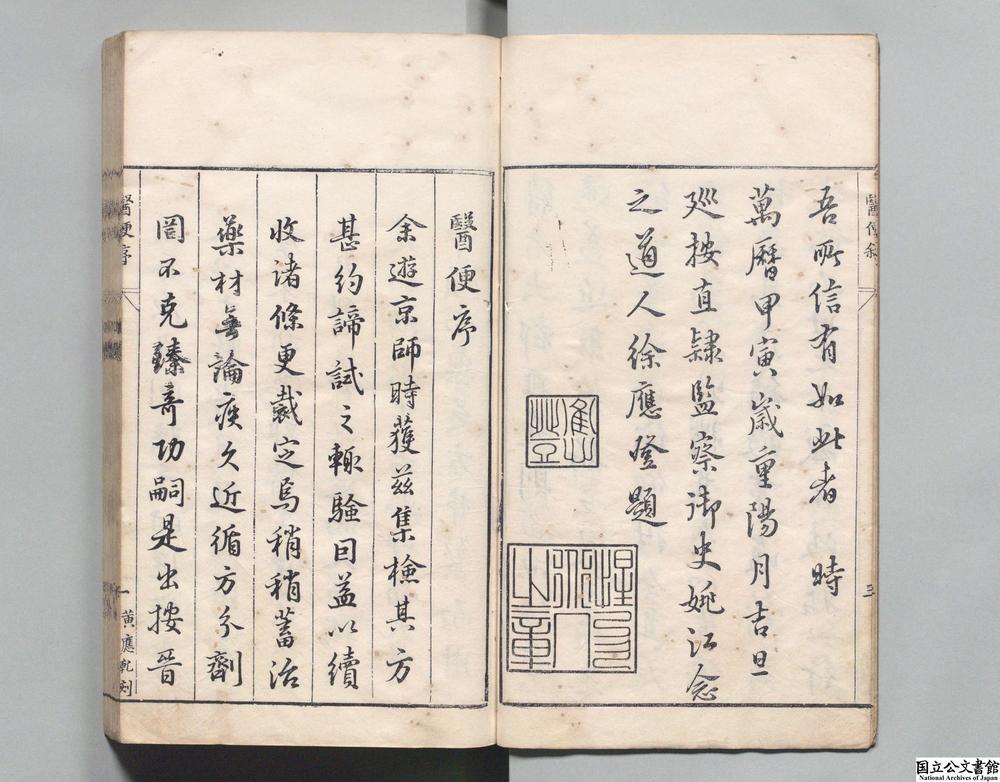 醫便敘
三
吾所信有如此者 時
萬曆甲寅歲重陽月吉旦
廵按直隸監察御史姚江念
之道人徐應登題
醫便序
余遊京師時獲茲集檢其方
甚約諦試之輒驗囙益以續
收諸條更裁定焉稍稍蓄治
藥材無論疾久近循方分劑
罔不克臻奇功嗣是出按晉
醫便序
一
黃應乾刻
国立公文書館
National Archives of Japan